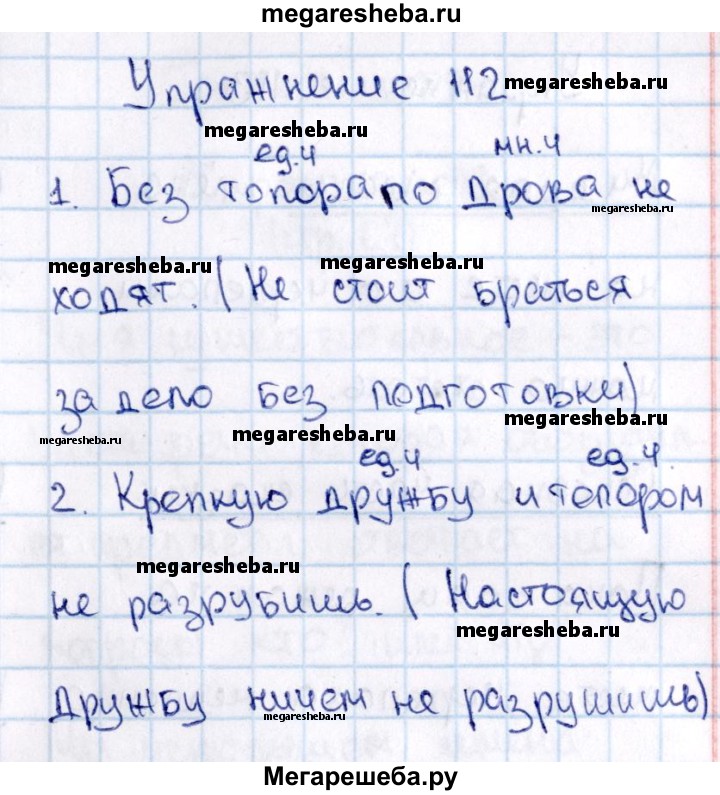 megaresheba.ru
Упражнение 112
megaresheba.ru
megaresheba.ru
ед.ч мн.ч
1. Без топора по дрова не
megaresheba.ru
megaresheba.ru megaresheba.ru
ходят. (Не стоит браться
за дело без подготовки)
megaresheba.ru
megaresheba.ru megaresheba.ru
ед.ч ед.ч
2. Крепкую дружбу и топором
megaresheba.ru
не разрубишь. (Настоящую
megaresheba.ru
дружбу ничем не разрушишь)
megaresheba.ru
Мегарешеба.ру